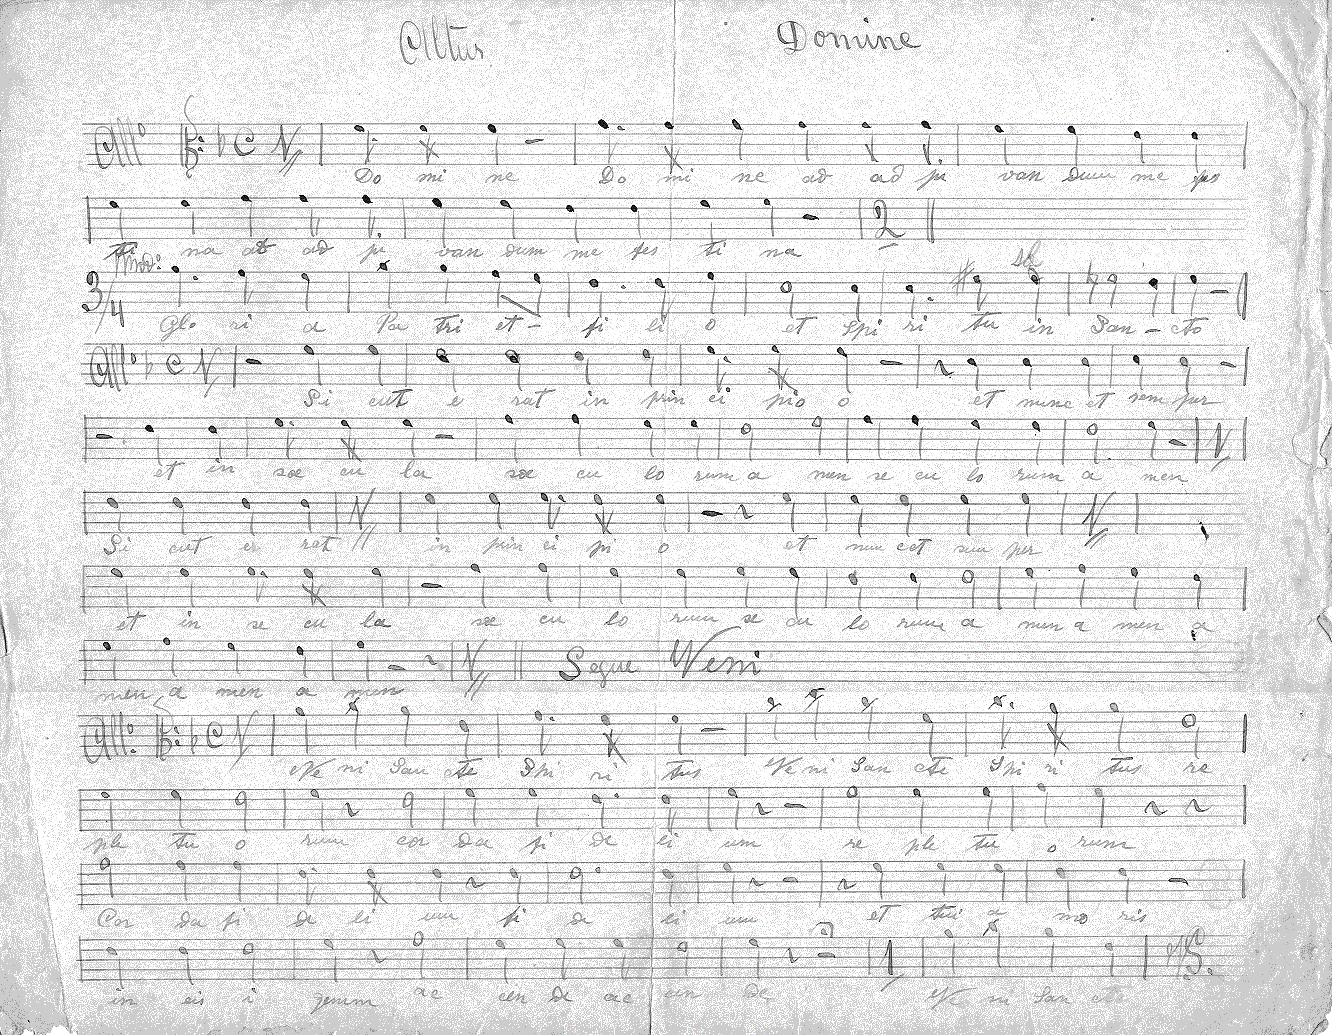 Altus Domine
All.º
Do mi ne Do mi ne ad ad ju van dum me fes
ti na ad ad ju van dum me fes ti na
2
Mod:
3/4
Glo ri a Pa tri et - fi li o et Spi ri tu in San - cto
All.º
Si cut e rat in prin ci pio o et nunc et sem per
et in sæ cu la sæ cu lo rum a men se cu lo rum a men
Si cut e rat in prin ci pi o et nun c et sem per
et in se cu la sæ cu lo rum se cu lo rum a men a men a
men a men a men Segue Veni
All.º
Ve ni San cte Spi ri tus Ve ni San cte Spi ri tus re
ple tu o rum cor da fi de li um re ple tu o rum
Cor da fi de li um fi de li um et tui a mo ris
1
in eis i gnem ac cen de ac cen de Ve ni San cte